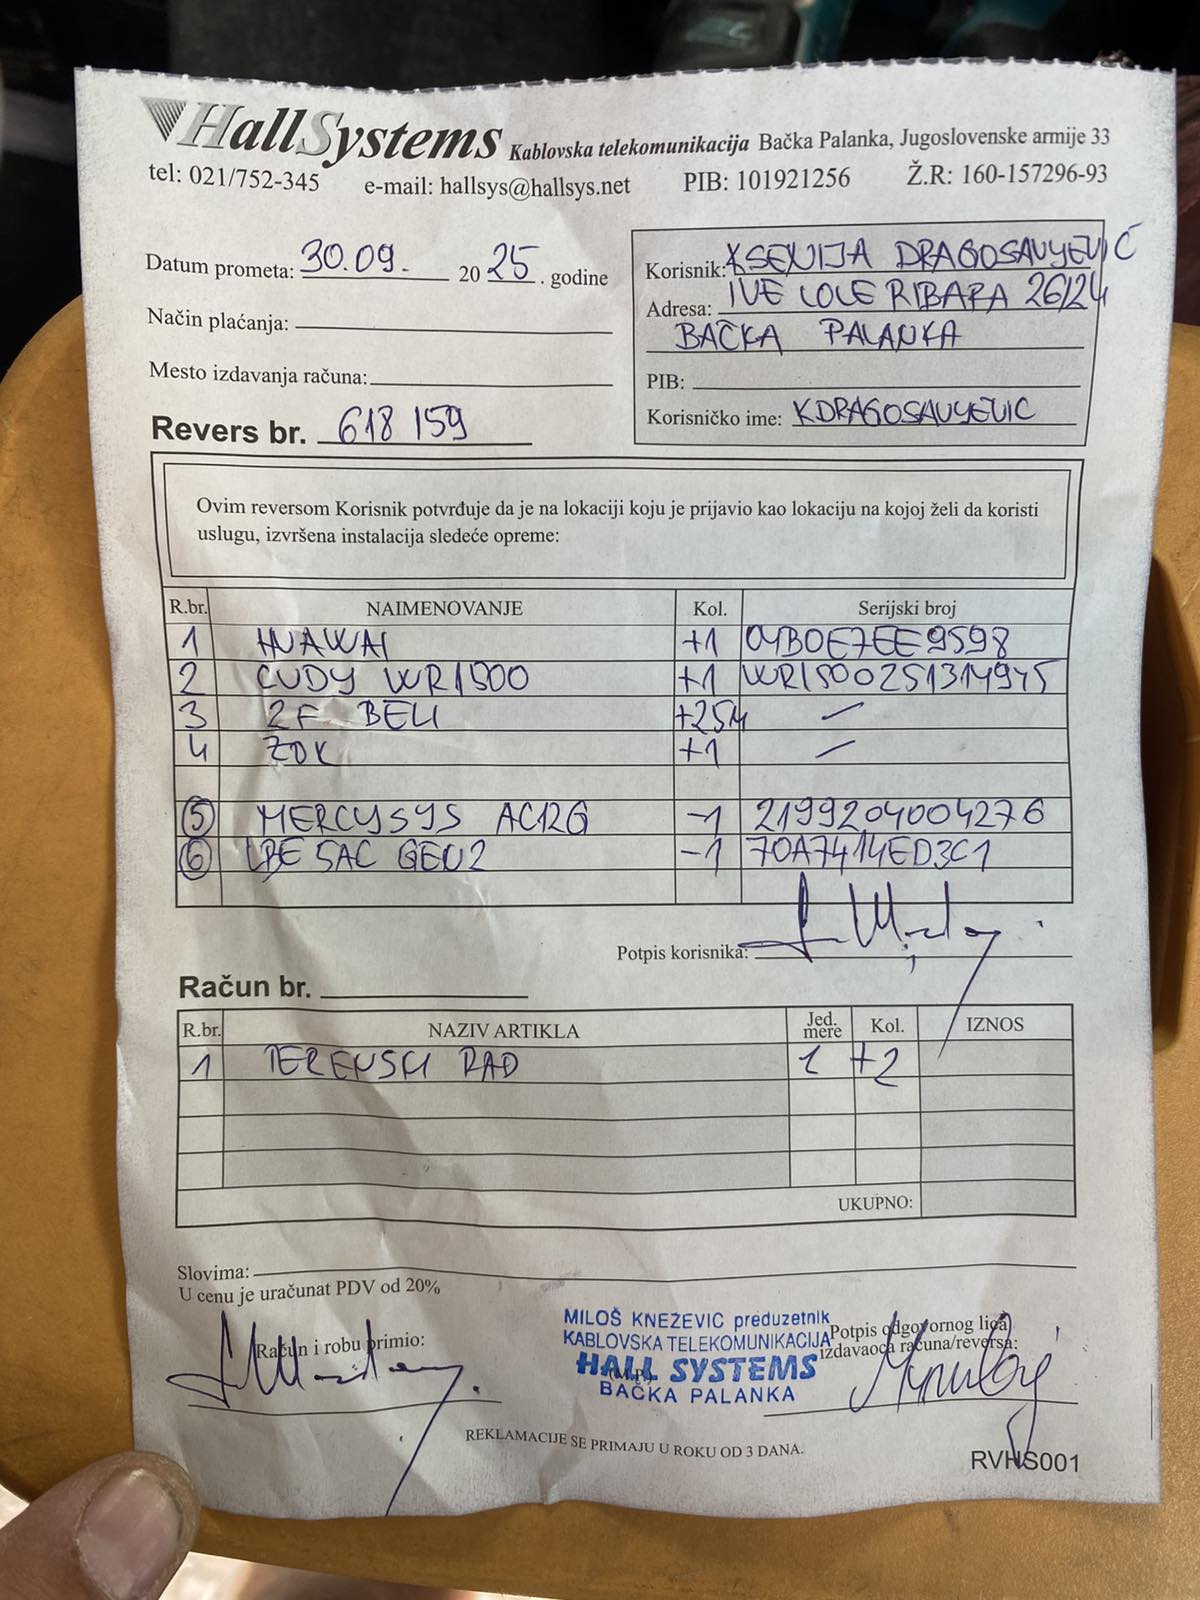 HallSystems Kablovska telekomunikacija Bačka Palanka, Jugoslovenske armije 33
tel: 021/752-345 e-mail: hallsys@hallsys.net PIB: 101921256 Ž.R: 160-157296-93
Datum prometa: 30.09. 2025. godine
Način plaćanja:
Mesto izdavanja računa:
Revers br. 618 159
Korisnik: KSENIJA DRAGOSAVLJEVIĆ
Adresa: IVE LOLE RIBARA 26/24
BAČKA PALANKA
PIB:
Korisničko ime: KDRAGOSAVLJEVIC
Ovim reversom Korisnik potvrđuje da je na lokaciji koju je prijavio kao lokaciju na kojoj želi da koristi
uslugu, izvršena instalacija sledeće opreme:
R.br. NAIMENOVANJE Kol. Serijski broj
1 HUAWAI +1 04B0E7EE9598
2 CUDY WR1500 +1 WR1500251314945
3 2F BELI +25M –
4 ZOK +1 –
5 MERCUSYS AC12G -1 2199204004276
6 LBE 5AC GEN2 -1 70A7414ED3C1
Potpis korisnika:
Račun br.
R.br. NAZIV ARTIKLA Jed. mere Kol. IZNOS
1 TERENSKI RAD 1 +2
UKUPNO:
Slovima:
U cenu je uračunat PDV od 20%
Račun i robu primio:
MILOŠ KNEŽEVIĆ preduzetnik
KABLOVSKA TELEKOMUNIKACIJA
HALL SYSTEMS
(M.P.)
BAČKA PALANKA
Potpis odgovornog lica
izdavaoca računa/reversa:
REKLAMACIJE SE PRIMAJU U ROKU OD 3 DANA.
RVHS001